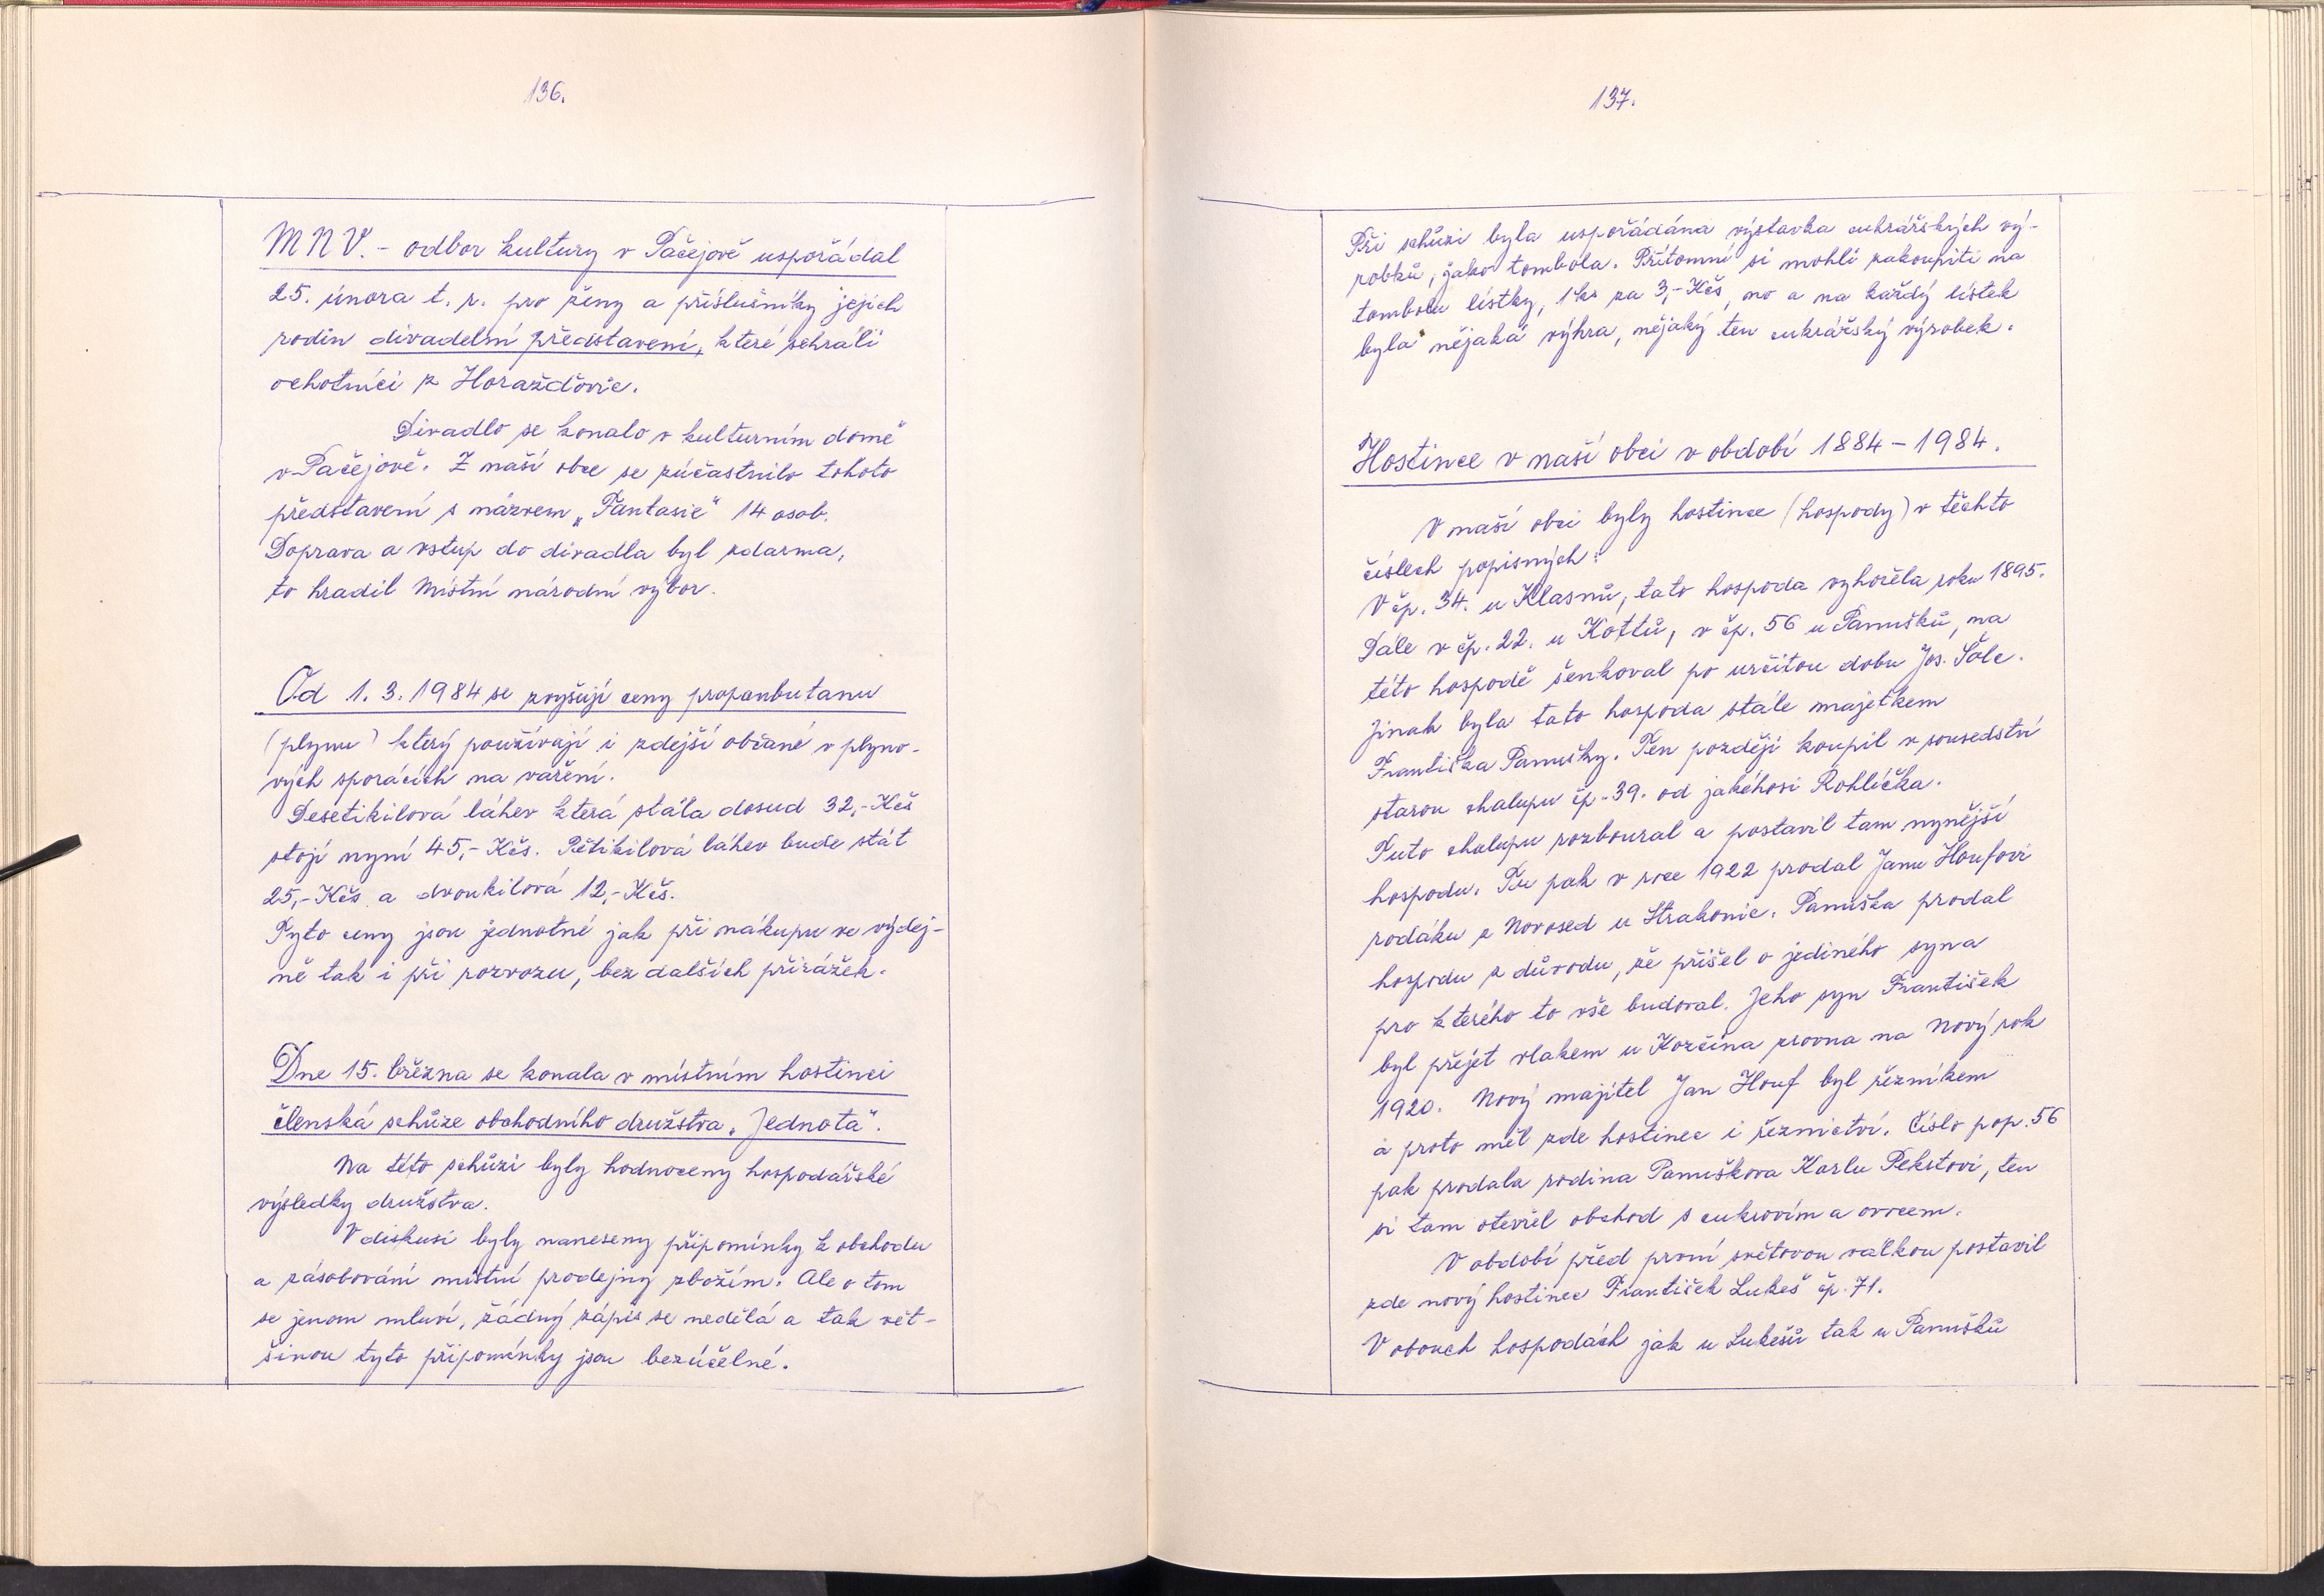 136.
MNV. - odbor kultury v Pačejově uspořádal
25. února t. r. pro ženy a příslušníky jejich
rodin divadelní představení, které sehráli
ochotníci z Horažďovic.
Divadlo se konalo v kulturním domě
v Pačejově. Z naší obce se zúčastnilo tohoto
představení s názvem „Fantasie" 14 osob.
Doprava a vstup do divadla byl zdarma,
to hradil Místní národní výbor.
Od 1. 3. 1984 se zvyšují ceny propanbutanu
(plynu) který používají i zdejší občané v plyno-
vých sporácích na vaření.
Desetikilová láhev která stála dosud 32,- Kčs
stojí nyní 45,- Kčs. Pětikilová láhev bude stát
25,- Kčs a dvoukilová 12,- Kčs.
Tyto ceny jsou jednotné jak při nákupu ve výdej-
ně tak i při rozvozu, bez dalších přirážek.
Dne 15. března se konala v místním hostinci
členská schůze obchodního družstva „Jednota".
Na této schůzi byly hodnoceny hospodářské
výsledky družstva.
V diskusi byly naneseny připomínky k obchodu
a zásobování místní prodejny zbožím. Ale o tom
se jenom mluví, žádný zápis se nedělá a tak vět-
šinou tyto připomínky jsou bezúčelné.
137.
Při schůzi byla uspořádána výstavka cukrářských vý-
robků, jako tombola. Přítomní si mohli zakoupiti na
tombolu lístky, 1 ks za 3,- Kčs, no a na každý lístek
byla nějaká výhra, nějaký ten cukrářský výrobek.
Hostince v naší obci v období 1884 - 1984.
V naší obci byly hostince (hospody) v těchto
číslech popisných:
V čp. 34. u Klasnů, tato hospoda vyhořela roku 1895.
Dále v čp. 22. u Kottů, v čp. 56 u Panušků, na
této hospodě šenkoval po určitou dobu Jos. Šolc.
Jinak byla tato hospoda stále majetkem
Františka Panušky. Ten později koupil v sousedství
starou chalupu čp. 39. od jakéhosi Rohlíčka.
Tuto chalupu rozboural a postavil tam nynější
hospodu. Tu pak v roce 1922 prodal Janu Houfovi
rodáku z Novosed u Strakonic. Panuška prodal
hospodu z důvodu, že přišel o jediného syna
pro kterého to vše budoval. Jeho syn František
byl přejet vlakem u Kozčína zrovna na Nový rok
1920. Nový majitel Jan Houf byl řezníkem
a proto měl zde hostinec i řeznictví. Číslo pop. 56
pak prodala rodina Panuškova Karlu Pekstovi, ten
si tam otevřel obchod s cukrovím a ovocem.
V období před první světovou válkou postavil
zde nový hostinec František Lukeš čp. 71.
V obouch hospodách jak u Lukešů tak u Panušků